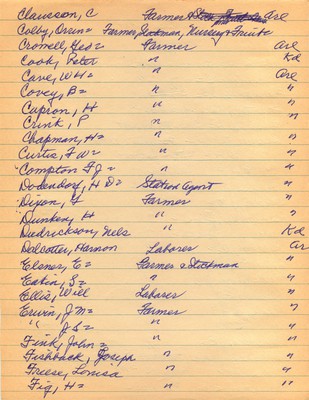 Clausson, C Farmer & Are
Colby, Orrin = Farmer, Stockman, Nursery & Fruits
Cromell, Geo = Farmer Are
Cook, Peter " Kd
Cave, W H = " Are
Covey, B = " "
Capron, H " "
Crink, P " "
Chapman, H = " "
Curtis, F W = " "
Compton F J = " "
Dodendorf, H D = Station agent "
Dixon, F Farmer "
Dunker, H " "
Dedrickson, Nels " Kd
Dalcotter, Harmon Laborer Ar
Elsner, E = Farmer & Stockman "
Eakin, S = " "
Ellis, Will Laborer "
Erwin, J M = Farmer "
" J S = " "
Fink, John = " "
Fishback, Joseph " "
Friese, Louisa " "
Fig, H = " "